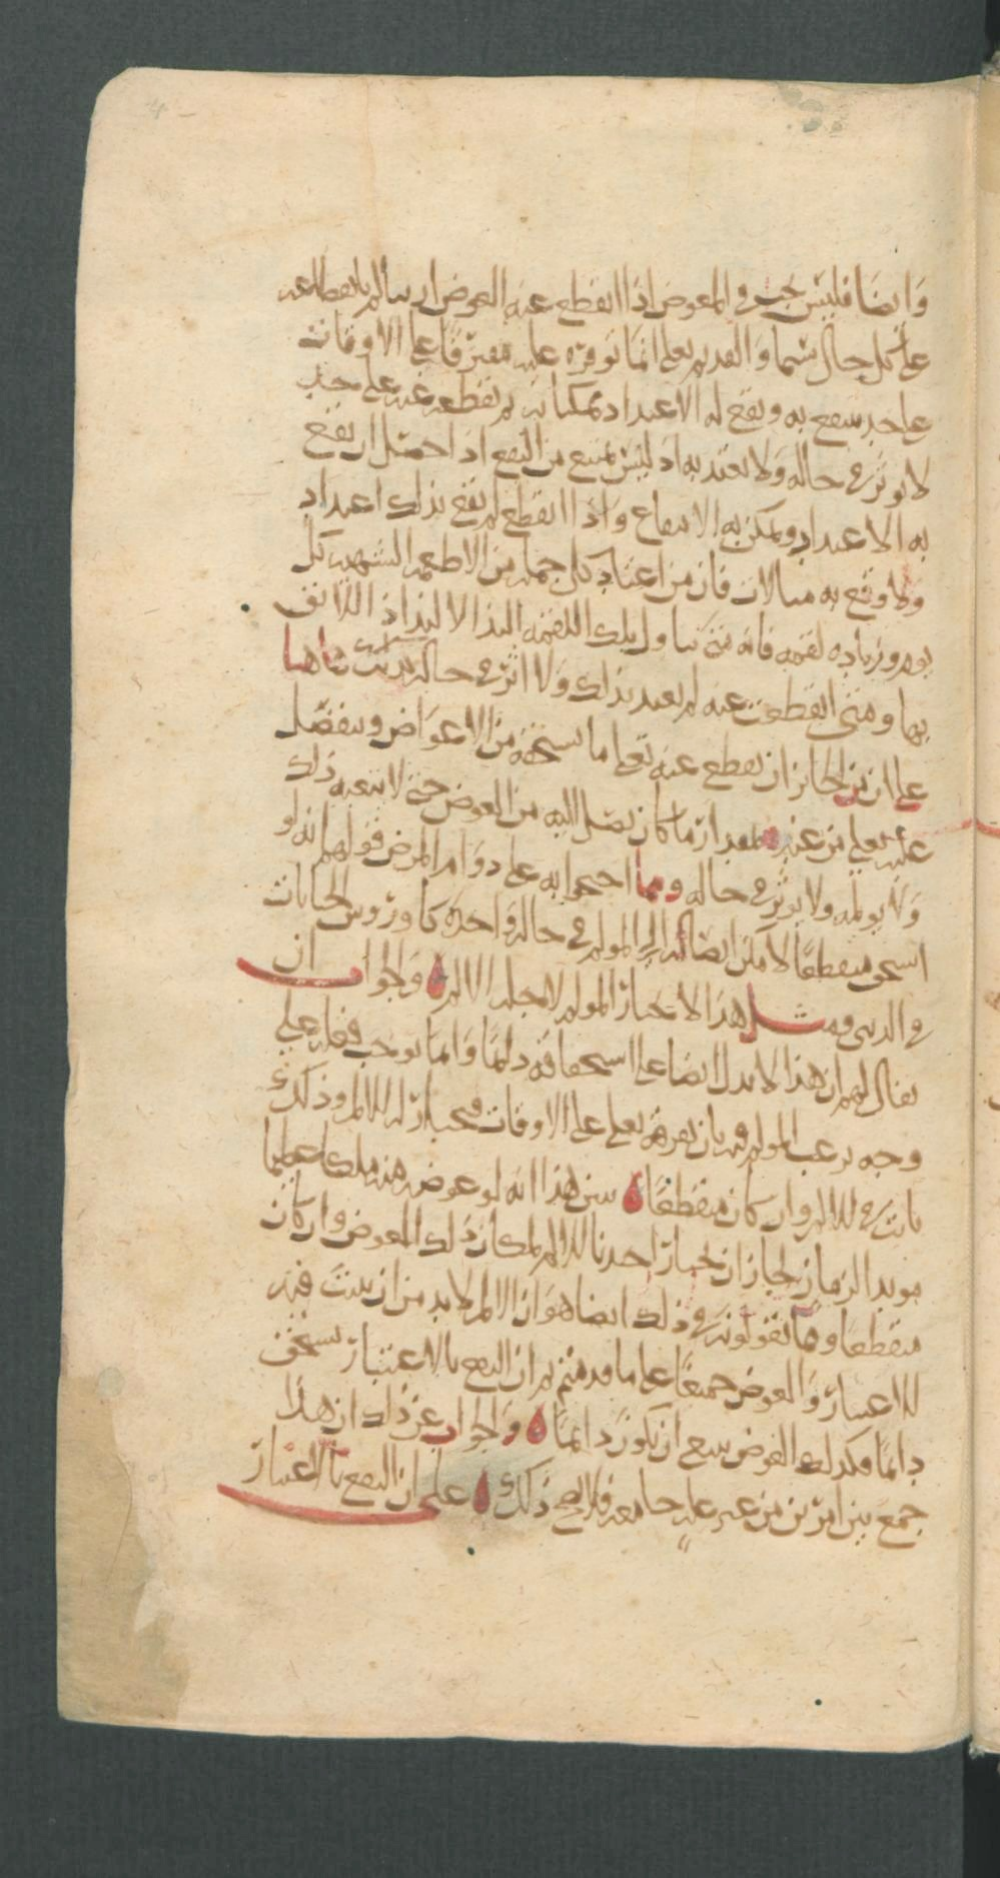 وايضا فليس يجب في المعوض اذا انقطع عنه العوض ان يتالم بانقطاعه
على كل حال سيما والقديم تعلى انما يوفره عليه مفرقا على الاوقات
على حد ينتفع به ويقع له الاعتداد بمكانه ثم يقطعه عنه على حد
لا يوثر في حاله ولا يعتد به اذ ليس يمتنع من النفع اذا احتمل ان يقع
به الاعتداد ويمكن به الانتفاع واذا انقطع لم يقع بذلك اعتداد
ولا وقع به مبالاة فان من اعتاد كل جملة من الاطعمة الشهية كل
يوم وزيادة لقمة فانه متى تناول تلك اللقمة التذ الالتذاذ اللائق
بها ومتى انقطعت عنه لم يعتد بذلك ولا اثر في حاله
على ان من الجائز ان يقطع عنه تعلى ما يستحقه من الاعواض ويتفضل
عليه تعلى من عنده بمقدار ما كان يصل اليه من العوض حتى لا يتبعه ذلك
ولا يولمه ولا يوثر في حاله ومما احتجوا به على دوام المرض قولهم انه لو
استحق منقطعا لامكن ايصاله الى المولم في حالة واحدة كاوروش الجنايات
في الدنى ومثل هذا لا يختار المولم لاجله الالم والجواب ان
يقال لهم ان هذا لا يدل ايضا على استحقاقه دائما وانما يوجب فعله على
وجه يرغب المولم فيه بان يفرقه تعلى على الاوقات فيختار له الالم وذلك
ثابت في الالم وان كان منقطعا يبين هذا انه لو عوض منه ملكا عظيما
موبدا الزمان لجاز ان يختار احدنا الالم لمكان ذلك العوض وان كان
منقطعا ومما يقولونه في ذلك ايضا هو ان الالم لا بد من ان يثبت فيه
الاعتبار والعوض جميعا على ما قدمتم ثم ان النفع بالاعتبار يستحق
دائما فكذلك العوض ينبغ ان يكون دائما والجواب عن ذلك ان هذا
جمع بين امرين من غير علة جامعة فلا يصح ذلك على ان النفع بالاعتبار